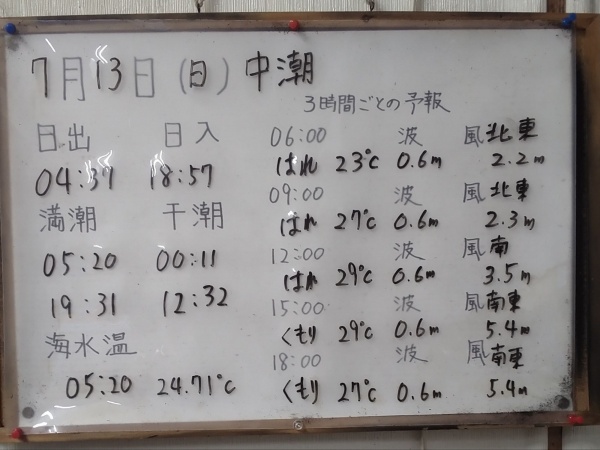 7月13日(日)中潮
3時間ごとの予報
日出 日入
04:37 18:57
満潮 干潮
05:20 00:11
19:31 12:32
海水温
05:20 24.71℃
06:00 波 風北東
はれ 23℃ 0.6m 2.2m
09:00 波 風北東
はれ 27℃ 0.6m 2.3m
12:00 波 風南
はれ 29℃ 0.6m 3.5m
15:00 波 風南東
くもり 29℃ 0.6m 5.4m
18:00 波 風南東
くもり 27℃ 0.6m 5.4m